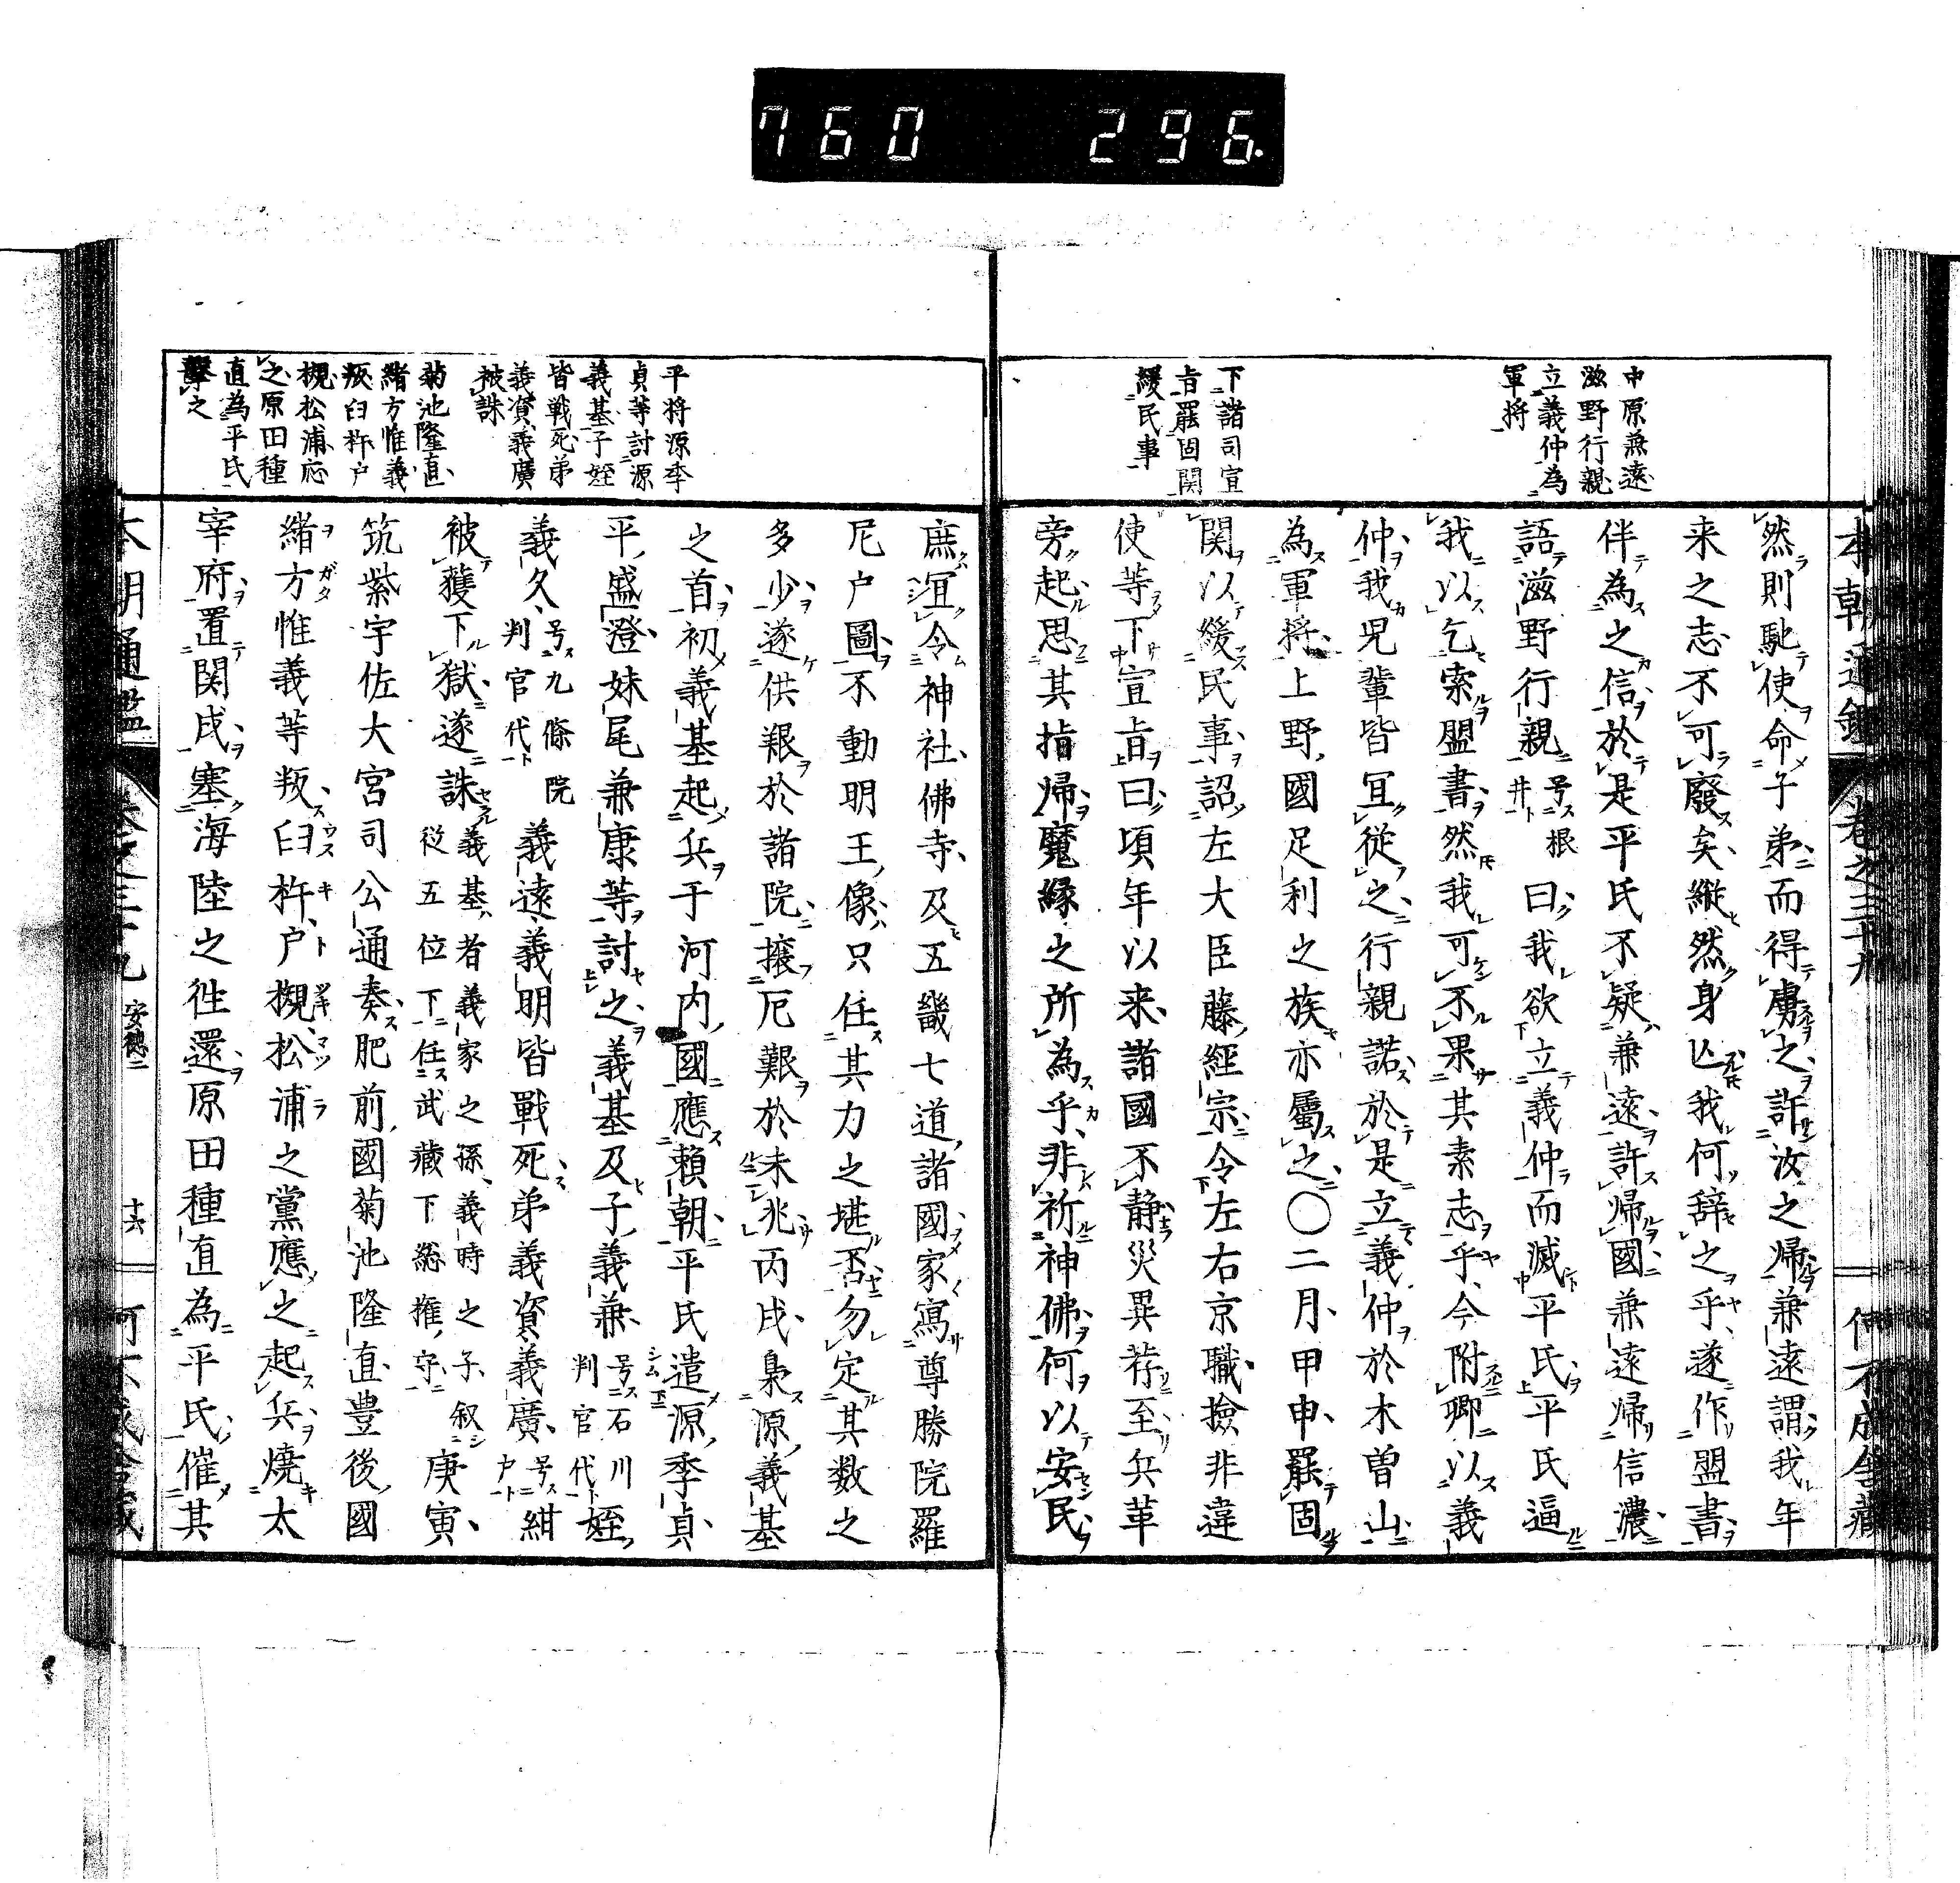 760 296.
本朝通鑑 卷之三十九 何不成舍藏
中原兼遠
滋野行親
立義仲為
軍将
下諸司宣
旨罷固関
緩民事
然則馳使命子弟而得虜之許汝之帰兼遠謂我年
来之志不可廢矣縦然身亡我何辞之乎遂作盟書
伴為之信於是平氏不疑兼遠許帰國兼遠帰信濃
語滋野行親号根井曰我欲立義仲而滅平氏平氏逼
我以乞索盟書然我可不果其素志乎今附卿以義
仲我児輩皆冝從之行親諾於是立義仲於木曽山
為軍将上野國足利之族亦屬之〇二月甲申罷固
関以緩民事詔左大臣藤經宗令左右京職撿非違
使等下宣旨曰頃年以来諸國不静災異荐至兵革
旁起思其指帰魔縁之所為乎非祈神佛何以安民
平将源季
貞等討源
義基子姪
皆戦死弟
義資義廣
被誅
菊池隆直
緒方惟義
叛臼杵户
槻松浦応
之原田種
直為平氏
擊之
庶冝令神社佛寺及五畿七道諸國家寫尊勝院羅
尼户圖不動明王像只任其力之堪否勿定其数之
多少遂供艱於諸院攘厄艱於未兆丙戌梟源義基
之首初義基起兵于河内國應賴朝平氏遣源季貞
平盛澄妹尾兼康等討之義基及子義兼号石川判官代姪
義久号九條院判官代義遠義明皆戰死弟義資義廣号紺户
被獲下獄遂誅義基者義家之孫義時之子叙從五位下任武藏下総権守庚寅
筑紫宇佐大宮司公通奏肥前國菊池隆直豊後國
緒方惟義等叛臼杵户槻松浦之黨應之起兵燒太
宰府置関戌塞海陸之往還原田種直為平氏催其
本朝通鑑 卷之三十九 安德二 十六 何不成舍藏